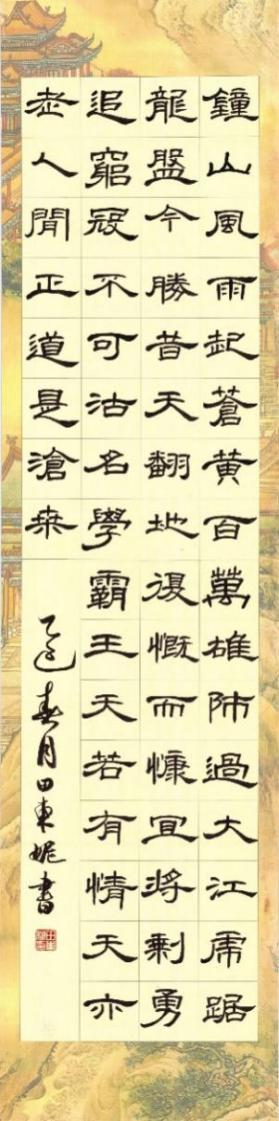 鐘山風雨起蒼黃百萬雄師過大江虎踞
龍盤今勝昔天翻地覆慨而慷宜將剩勇
追窮寇不可沽名學霸王天若有情天亦
老人間正道是滄桑
乙巳春月田東妮書